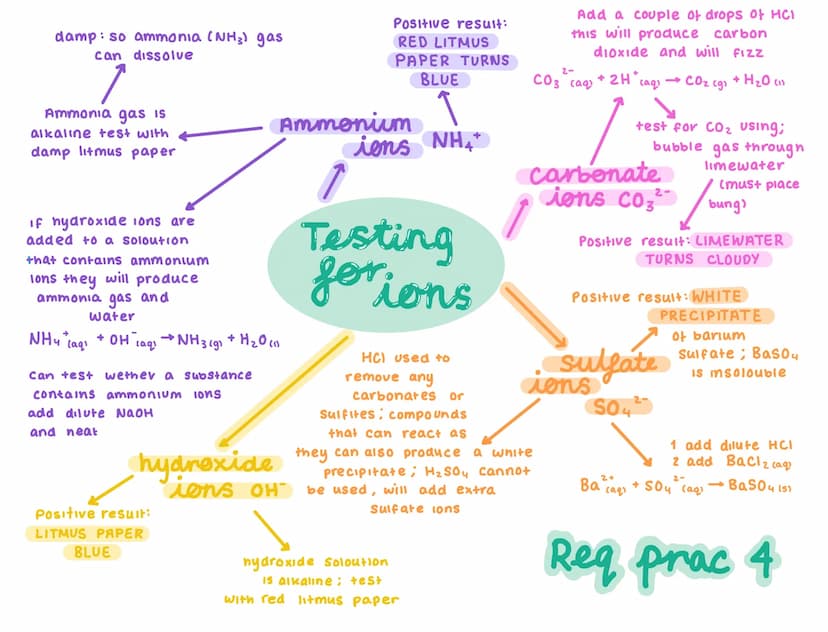 damp: so ammonia (NH₃) gas
can dissolve
Ammonia gas is
alkaline test with
damp litmus paper
Positive result:
RED LITMUS
PAPER TURNS
BLUE
Ammonium
ions NH₄⁺
If hydroxide ions are
added to a soloution
that contains ammonium
ions they will produce
ammonia gas and
water
NH₄⁺(aq) + OH⁻(aq) → NH₃(g) + H₂O(l)
Can test wether a substance
contains ammonium ions
add dilute NaOH
and neat
Add a couple of drops of HCl
this will produce carbon
dioxide and will fizz
CO₃²⁻(aq) + 2H⁺(aq) → CO₂(g) + H₂O(l)
test for CO₂ using;
bubble gas through
limewater
(must place
bung)
Carbonate
ions CO₃²⁻
Positive result: LIMEWATER
TURNS CLOUDY
Testing
for ions
Positive result: WHITE
PRECIPITATE
of barium
sulfate; BaSO₄
is insolouble
sulfate
ions
SO₄²⁻
1 add dilute HCl
2 add BaCl₂(aq)
Ba²⁺(aq) + SO₄²⁻(aq) → BaSO₄(s)
HCl used to
remove any
carbonates or
sulfites; compounds
that can react as
they can also produce a white
precipitate; H₂SO₄ cannot
be used, will add extra
sulfate ions
hydroxide
ions OH⁻
Positive result:
LITMUS PAPER
BLUE
hydroxide soloution
is alkaline; test
with red litmus paper
Req prac 4